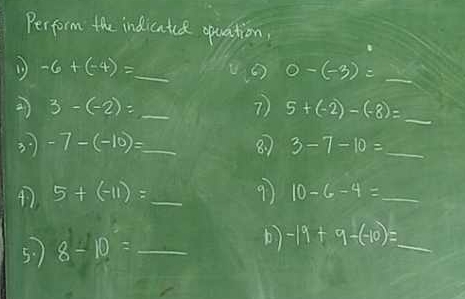 Perform the indicated operation,
1.) -6 + (-4) = __
2) 3 - (-2) = __
3.) -7 - (-10) = __
4) 5 + (-11) = __
5.) 8 - 10 = __
6) 0 - (-3) = __
7) 5 + (-2) - (-8) = __
8.) 3 - 7 - 10 = __
9) 10 - 6 - 4 = __
10) -19 + 9 - (-10) = __